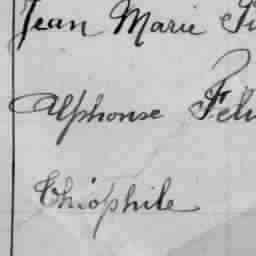 Jean Marie
Alphonse
Thiophile